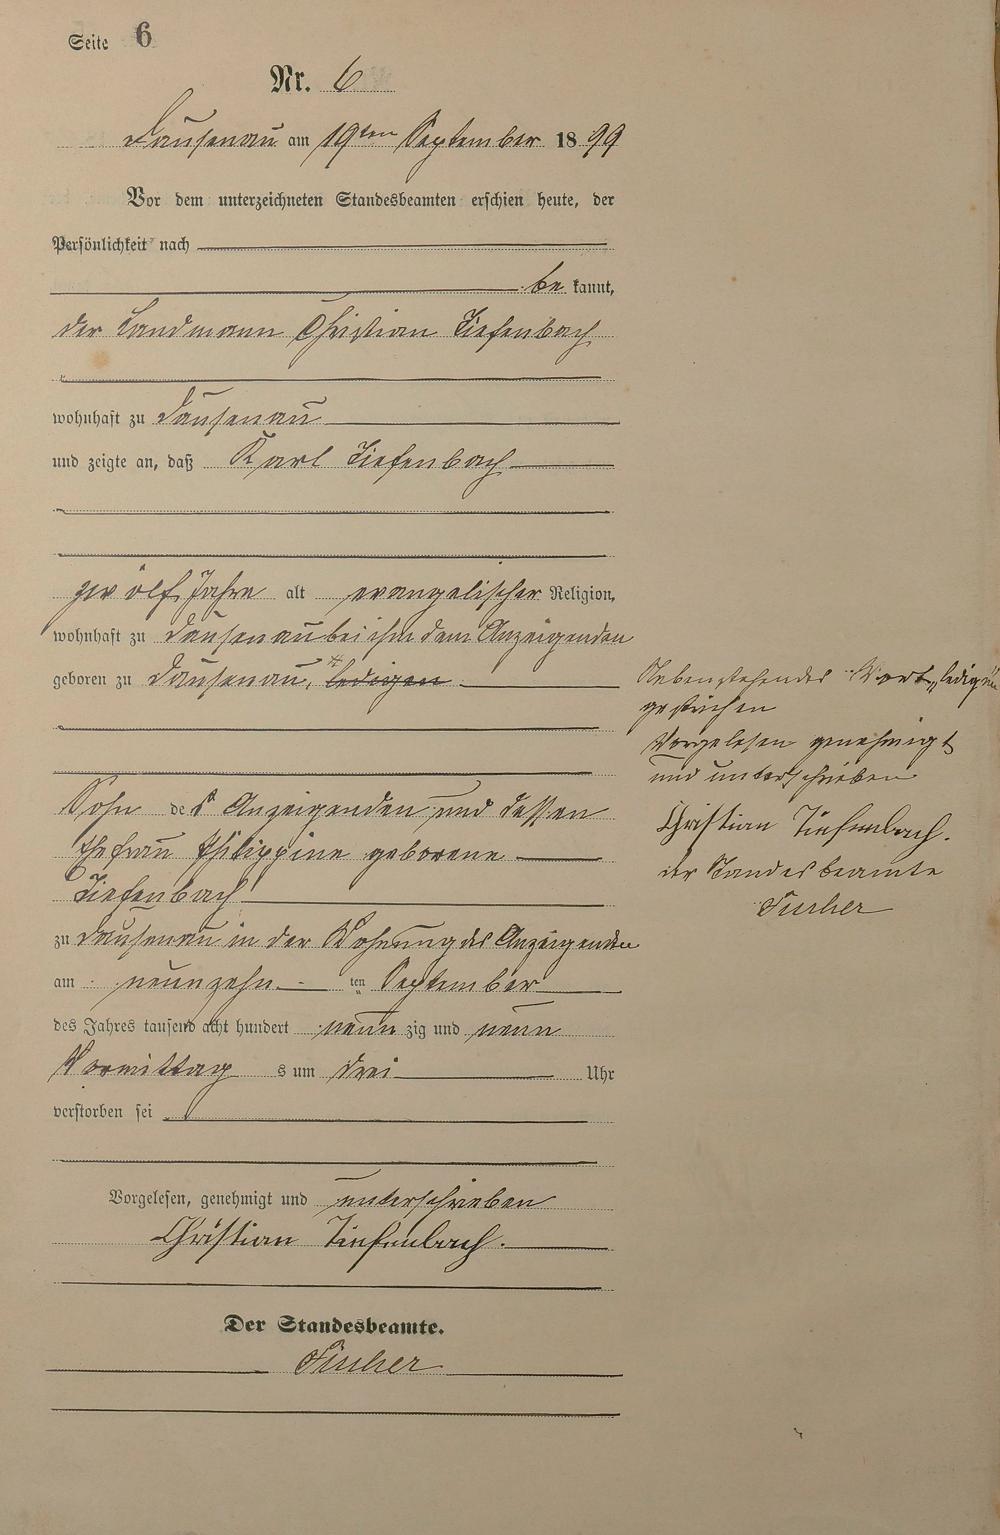 Seite 6
Nr. 6
Dausenau am 19ten September 1899
Vor dem unterzeichneten Standesbeamten erschien heute, der
Persönlichkeit nach
be kannt,
der Landmann Christian Tiefenbach
wohnhaft zu Dausenau
und zeigte an, daß Karl Tiefenbach
zwölf Jahre alt evangelischer Religion,
wohnhaft zu Dausenau bei ihm dem Anzeigenden
geboren zu Dausenau, ledigen
Sohn des Anzeigenden und dessen
Ehefrau Philippine geborene
Tiefenbach
zu Dausenau in der Wohnung des Anzeigenden
am neunzehn ten September
des Jahres tausend acht hundert neun zig und neun
Vormittag s um drei Uhr
verstorben sei
Vorgelesen, genehmigt und unterschrieben
Christian Tiefenbach.
Der Standesbeamte.
Fischer
Nebenstehendes Wort „ledigen"
gestrichen
Vorgelesen genehmigt
und unterschrieben
Christian Tiefenbach.
der Standesbeamte
Fischer